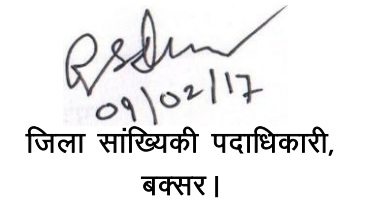 09/02/17
जिला सांख्यिकी पदाधिकारी,
बक्सर।